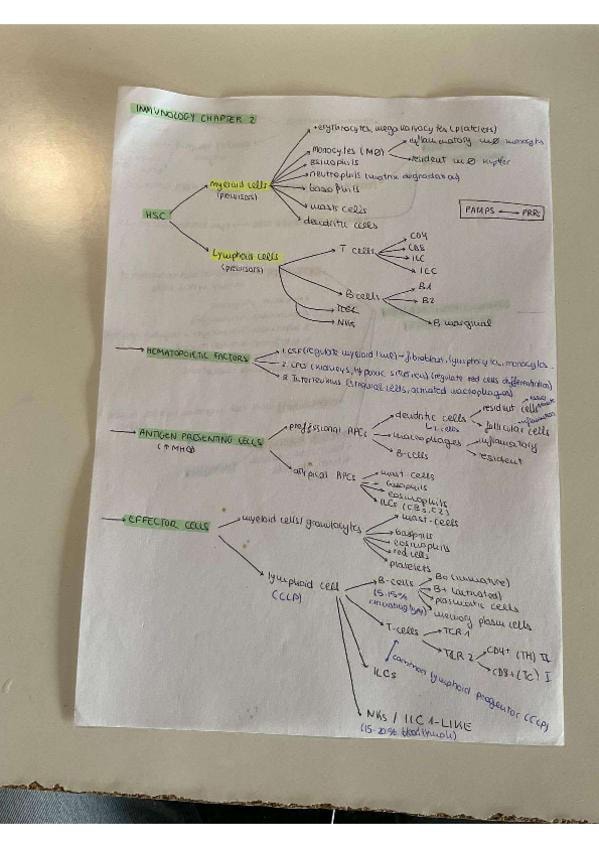 IMMUNOLOGY CHAPTER 2
erythrocytes, megakaryocytes (platelets)
monocytes (MØ)
inflammatory mØ monocyts
resident mØ kupfer
esinophils
neutrophils (matrix degradation)
myeloid cells
(precursors)
basophils
mastcells
dendritic cells
PAMPS PRRs
HSC
Lymphoid cells
(precursors)
T cells
CD4
CD8
ILC
ICC
B cells
B1
B2
B marginal
NKs
HEMATOPOIETIC FACTORS
1. CSF (regulate myeloid line) - fibroblast, lymphocytes, monocytes.
2. (kidneys, hypoxic situations) (regulate red cells differentiation)
3. (stromal cells, activated macrophages)
ANTIGEN PRESENTING CELLS
(↑MHC)
proffesional APCs
dendritic cells
L. cells
resident cells
follicular cells
inflammation
macrophages
inflamatory
resident
B-cells
atipical APCs
mast cells
basophils
eosinophils
ILCs
EFFECTOR CELLS
myeloid cells/granulocytes
mast-cells
basophils
eosinophils
red cells
platelets
lymphoid cell
(CLP)
B-cells
(5-15%
circulating lymph)
B0 (inmature)
B+ (activated)
plasmatic cells
memory plasm cells
T-cells
TCR1
TCR 2
CD4+ (TH) II
CD8+ (TC) I
common lymphoid progenitor (CLP)
ILCs
NKs / ILC1-LIKE